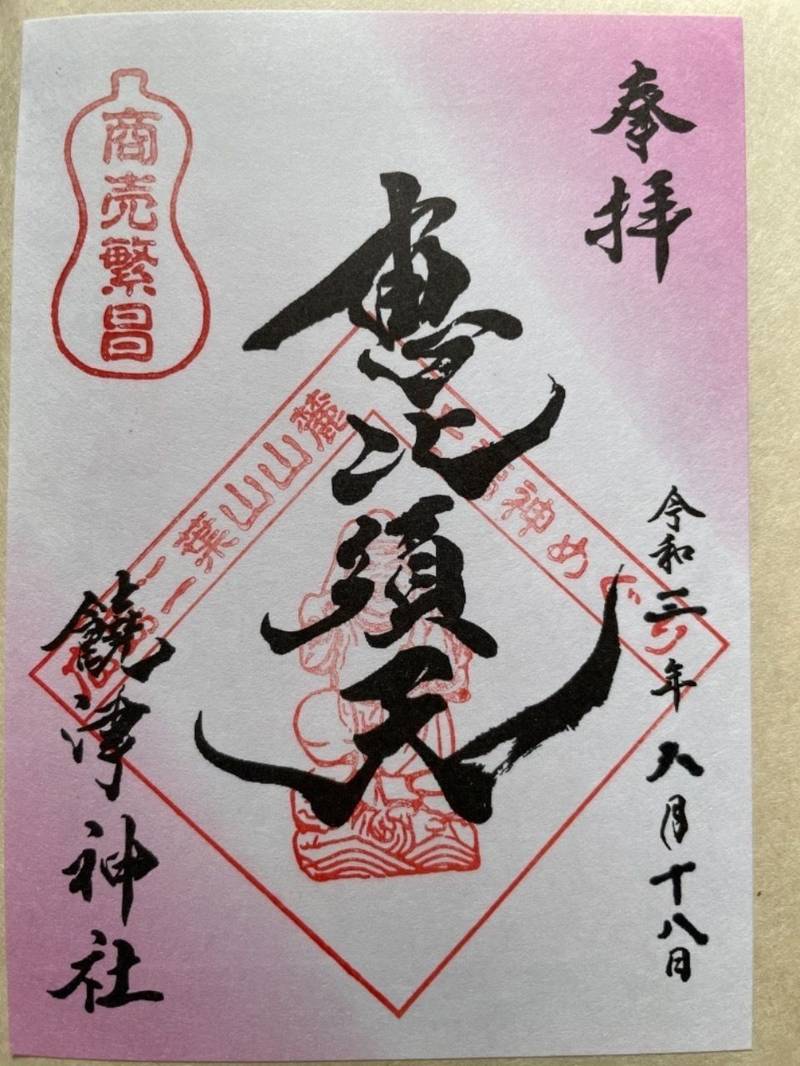 奉拝
恵比須天
商売繁昌
二葉山山麓
七福神めぐり
令和三年 月十八日
饒津神社